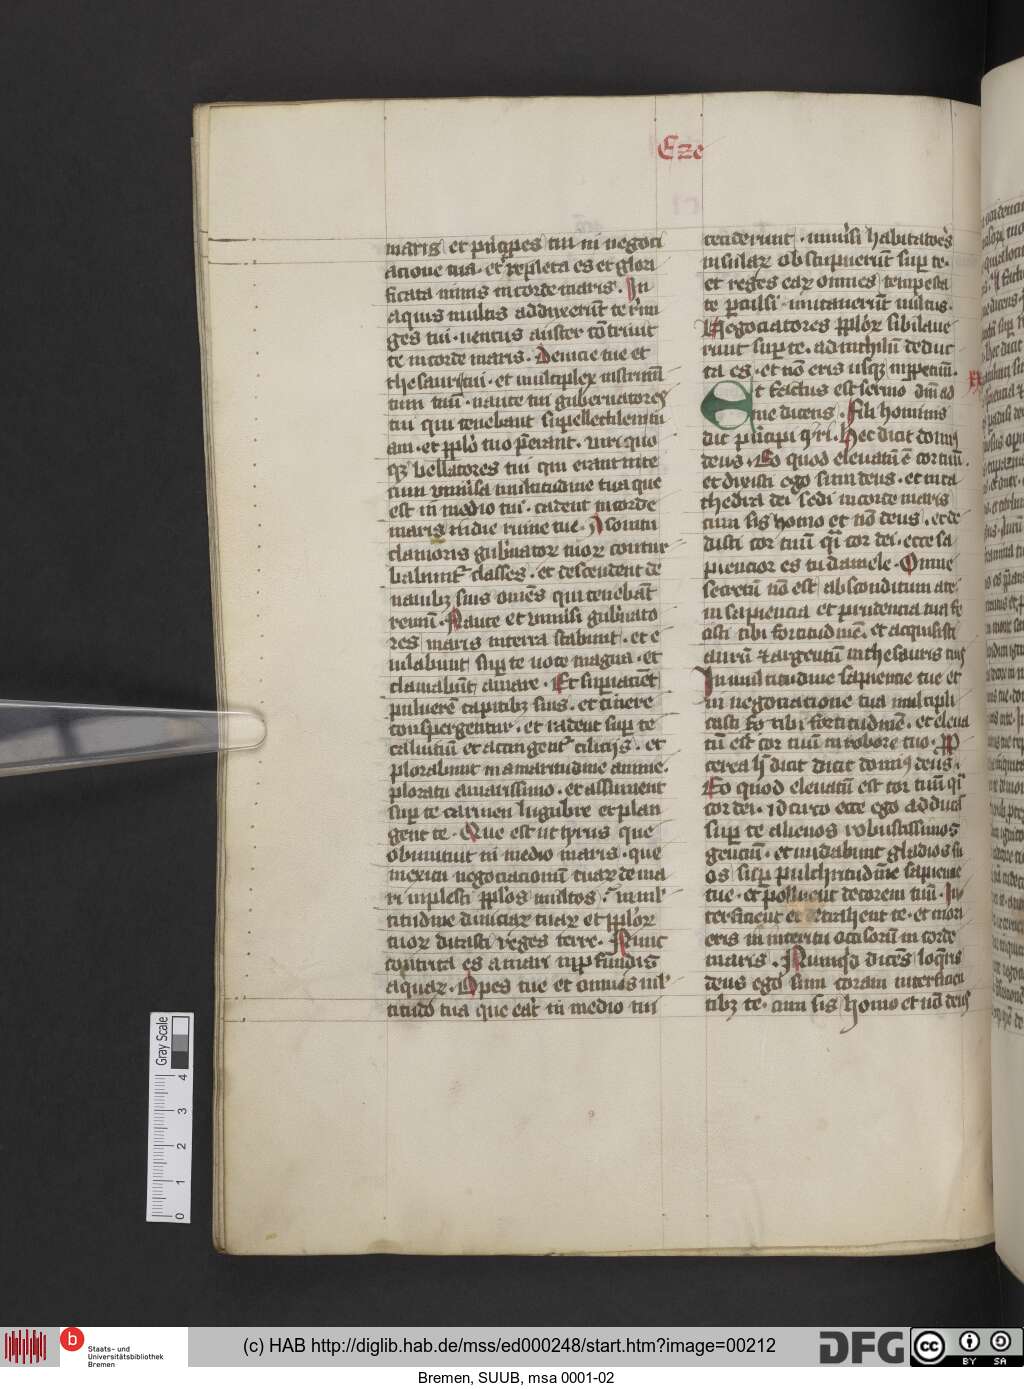 Eze
maris et pricipes tui in negoci
acione tua · et repleta es et glori
ficata nimis in corde maris · In
aquis multis adduxerūt te rimi
ges tui · uentus auster cōtriuit
te in corde maris · Deuicie tue et
thesauri tui · et multiplex instrum̄
tum tuū · naute tui gubernatores
tui qui tenebant supellectilem tu
am · et pplo tuo p̄erant · uiri quo
qz bellatores tui qui erant in te
cum vniuersa multitudine tua que
est in medio tui · cadent in corde
maris in die ruine tue · A sonitu
clamoris gubnatorz tuorz contur
babunt᷑ classes · et descendent de
nauibz suis omēs qui tenebāt
remū · Naute et vniuersi gubnato
res maris in terra stabunt · et e
iulabunt sup te uoce magna · et
clamabūt amare · Et supiacient
puluerē capitibz suis · et cinere
conspergentur · et radent sup te
caluitiū et accingent᷑ ciliciis · et
plorabunt in amaritudine anime ·
ploratu amarissimo · et assument
sup te carmen lugubre et plan
gent te · Que est ut tyrus que
obmutuit in medio maris · que
in exitu negociacionū tuarz de ma
ri inplesti pplos multos · in mul
titudine diuiciarz tuarz et pplorz
tuorz ditasti reges terre · Nunc
contrita es a mari in pfundis
aquarz · Opes tue et omnis mul
titudo tua que erat in medio tui
ceciderunt · uniuersi habitatores
insularz obstupuerūt sup te ·
et reges earz omnes tempesta
te pculsi · mutauerūt uultus ·
Negociatores pplorz sibilaue
runt sup te · ad nichilū deduc
ta es · et nō eris usqz in ppetuū ·
Et factus est sermo dm̄ ad
me dicens · Fili hominis
dic pncipi tyri · Hec dicit domin9
deus · Eo quod eleuatū ē cor tuū ·
et dixisti ego sum deus · et in ca
thedra dei sedi in corde maris
cum sis homo et nō deus · et de
disti cor tuū q̄i cor dei · ecce sa
piencior es tu daniele · Omne
secretū nō est absconditum a te ·
in sapiencia et prudencia tua fe
cisti tibi fortitudinē · et acquisisti
aurū et argentū in thesauris tuis
In multitudine sapiencie tue et
in negociacione tua multipli
casti tibi fortitudinē · et eleua
tū est cor tuum in robore tuo · Pp
terea h̄ dicit dicit domin9 deus ·
Eo quod eleuatū est cor tuū q̄i
cor dei · idcirco ecce ego adducā
sup te alienos robustissimos
gencium · et nudabunt gladios su
os sup pulchritudinē sapiencie
tue · et polluent decorem tuū · In
terficient et detrahent te · et mori
eris in interitu occisorū in corde
maris · Nunqd dicens loqueris
deus ego sum coram interficien
tibz te · cum sis homo et nō deus
Gray Scale
4
3
2
1
0
b Staats- und
Universitätsbibliothek
Bremen
(c) HAB http://diglib.hab.de/mss/ed000248/start.htm?image=00212
DFG
cc BY SA
Bremen, SUUB, msa 0001-02